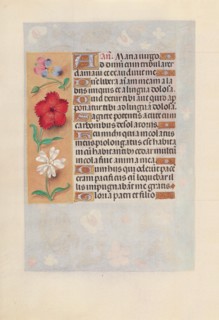 añ. Maria uirgo.
Ad dñum cum tribularer
clamaui et exaudiuit me.
Dñe libera aĩam meam a la
biis iniquis et a lingua dolosa.
Quid detur tibi aut quid ap
ponatur tibi ad linguã dolosã.
Sagitte potentis acute cum
carbonibus desolatoriis.
Heu michi quia incolatus
meus prolongatus est habita
ui cum habitãtibȝ cedar multũ
incola fuit anima mea.
Cum hiis qui oderũt pace
eram pacificus cũ loquebar il
lis impugnabãt me gratis.
Gloria patri et filio